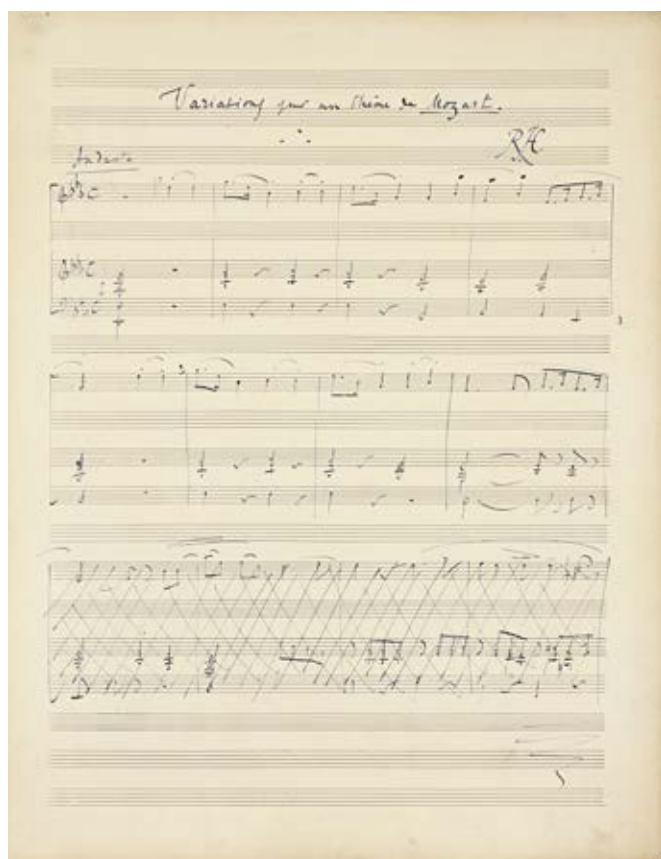 Variations sur un thème de Mozart.
RH
Andante